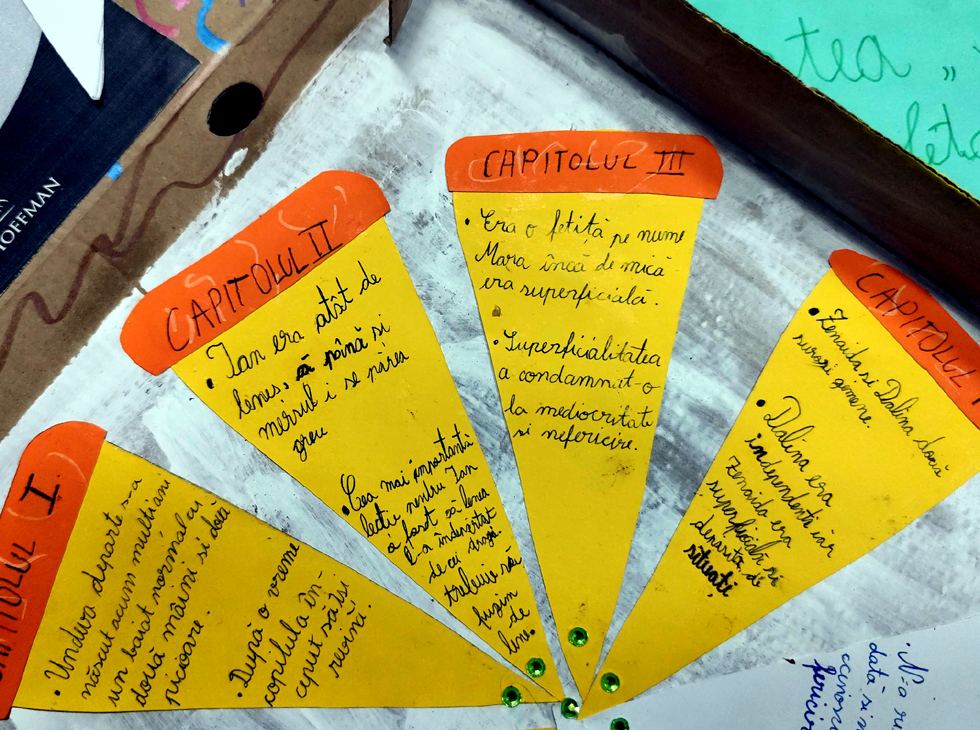 HOFFMAN
tea "
fetiț
CAPITOLUL I.
• Undeva departe s-a
născut acum mulți ani
un baiat normal cu
două mâini si două
picioare.
• După o vreme
copilul a în
ceput să își
revină.
CAPITOLUL II
• Ian era atât de
lenes, că până si
mersul i se părea
greu
• Cea mai importantă
lecție pentru Ian
a fost că lenea
l-a îndepărtat
de cei dragi.
trebuie să
fugim
de
lene.
CAPITOLUL III
• Era o fetiță pe nume
Mara încă de mică
era superficială.
• Superficialitatea
a condamnat-o
la mediocritate
si nefericire.
CAPITOLUL
• Zenaida si Dalina două
surori gemene.
• Dalina era
independentă iar
Zenaida era
superficială si
datorită de
situații
• N-a
dată si